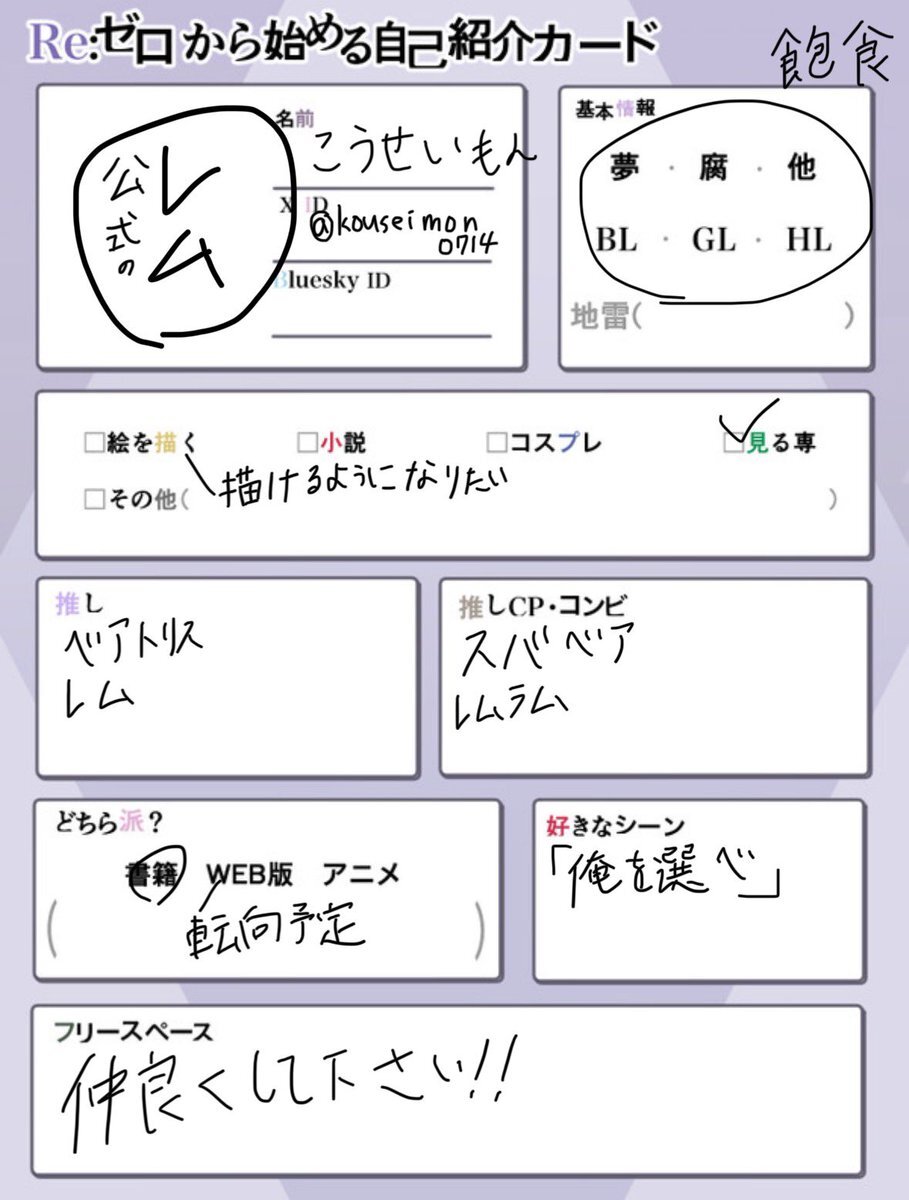 Re:ゼロから始める自己紹介カード
飽食
公式の
レム
名前
こうせいもん
X ID
@kouseimon
0714
Bluesky ID
基本情報
夢・腐・他
BL・GL・HL
地雷( )
□絵を描く □小説 □コスプレ □見る専
描けるようになりたい
□その他( )
推し
ベアトリス
レム
推しCP・コンビ
スバベア
レムラム
どちら派？
書籍 WEB版 アニメ
( 転向予定 )
好きなシーン
「俺を選べ」
フリースペース
仲良くして下さい!!